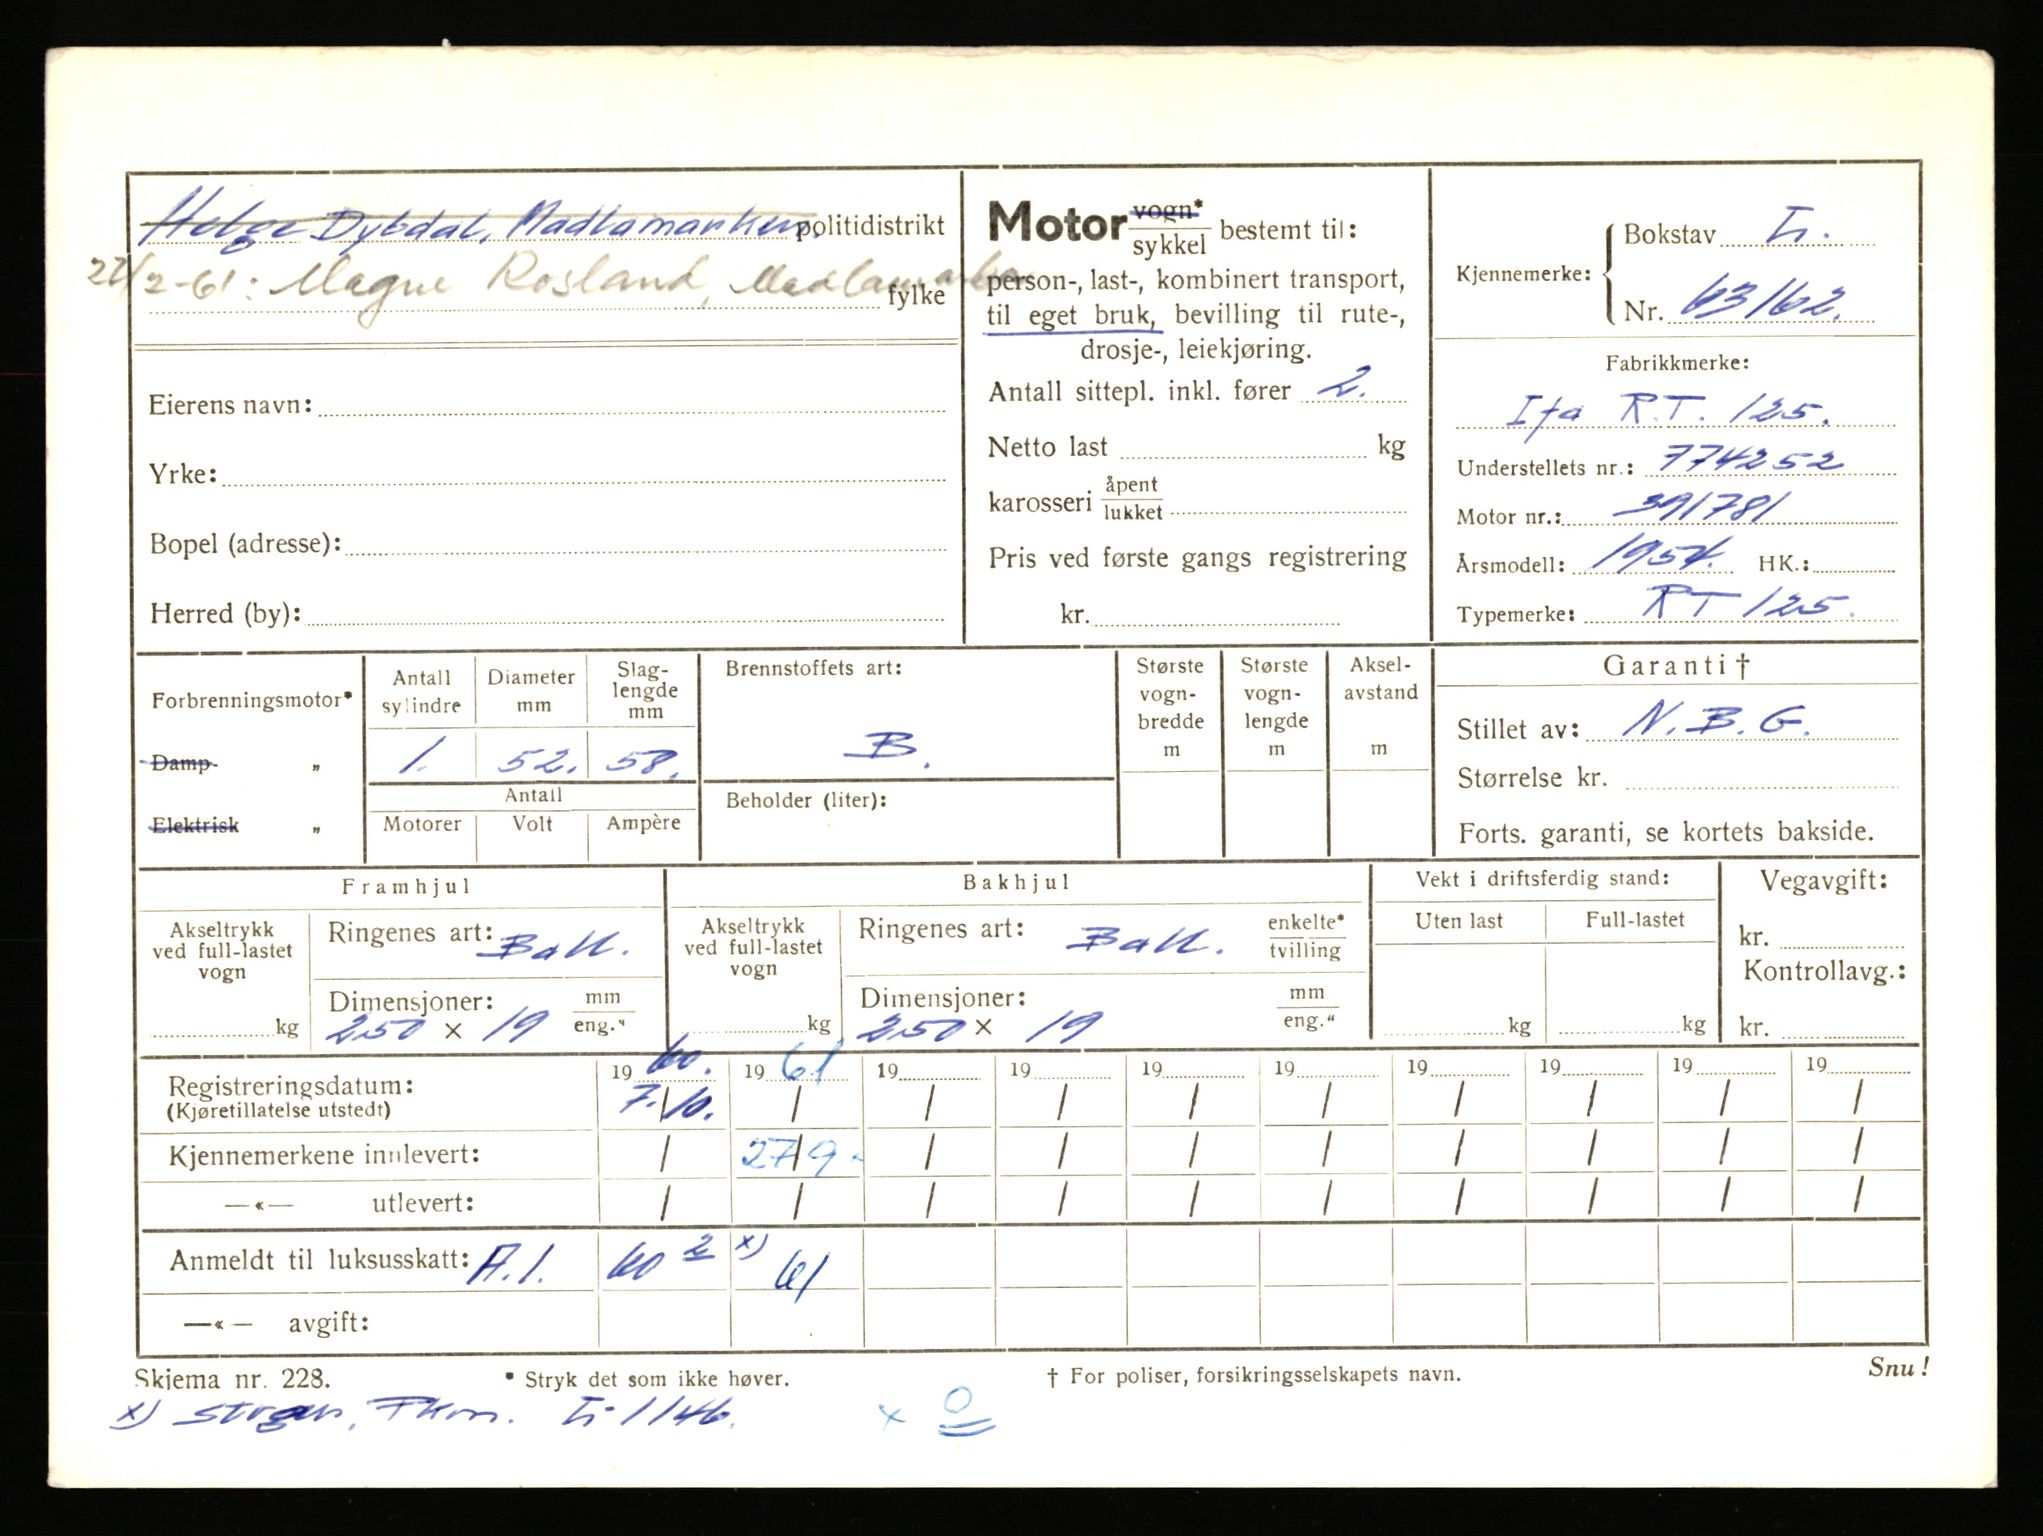 Helge Dybdal, Madlamarken. politidistrikt
22/2-61: Magne Rosland, Madlamarka fylke
Eierens navn:
Yrke:
Bopel (adresse):
Herred (by):
Motor vogn*/sykkel bestemt til:
person-, last-, kombinert transport,
til eget bruk, bevilling til rute-,
drosje-, leiekjøring.
Antall sittepl. inkl. fører 2.
Netto last kg
karosseri åpent/lukket
Pris ved første gangs registrering
kr.
Kjennemerke:
Bokstav L.
Nr. 63162.
Fabrikkmerke:
Ifa R.T. 125.
Understellets nr.: 774252
Motor nr.: 391781
Årsmodell: 1954. HK.:
Typemerke: RT 125.
Forbrenningsmotor*
Damp "
Elektrisk "
Antall sylindre
1.
Diameter mm
52.
Slag-lengde mm
58.
Antall
Motorer Volt Ampère
Brennstoffets art:
B.
Beholder (liter):
Største vogn-bredde m
Største vogn-lengde m
Aksel-avstand m
Garanti †
Stillet av: N.B.G.
Størrelse kr.
Forts. garanti, se kortets bakside.
Framhjul
Akseltrykk ved full-lastet vogn
kg
Ringenes art: Ball.
Dimensjoner: mm
250 x 19 eng."
Bakhjul
Akseltrykk ved full-lastet vogn
kg
Ringenes art: Ball. enkelte*/tvilling
Dimensjoner: mm
250 x 19 eng."
Vekt i driftsferdig stand:
Uten last Full-lastet
kg kg
Vegavgift:
kr.
Kontrollavg.:
kr.
19 60. 19 61 19 19 19 19 19 19 19 19
Registreringsdatum: 7./10. / / / / / / / / /
(Kjøretillatelse utstedt)
Kjennemerkene innlevert: / 27/9- / / / / / / / /
—«— utlevert: / / / / / / / / / /
Anmeldt til luksusskatt: A.1. 60 2 x) 61
—«— avgift:
Skjema nr. 228. * Stryk det som ikke høver. † For poliser, forsikringsselskapets navn. Snu!
x) 1146. x 0